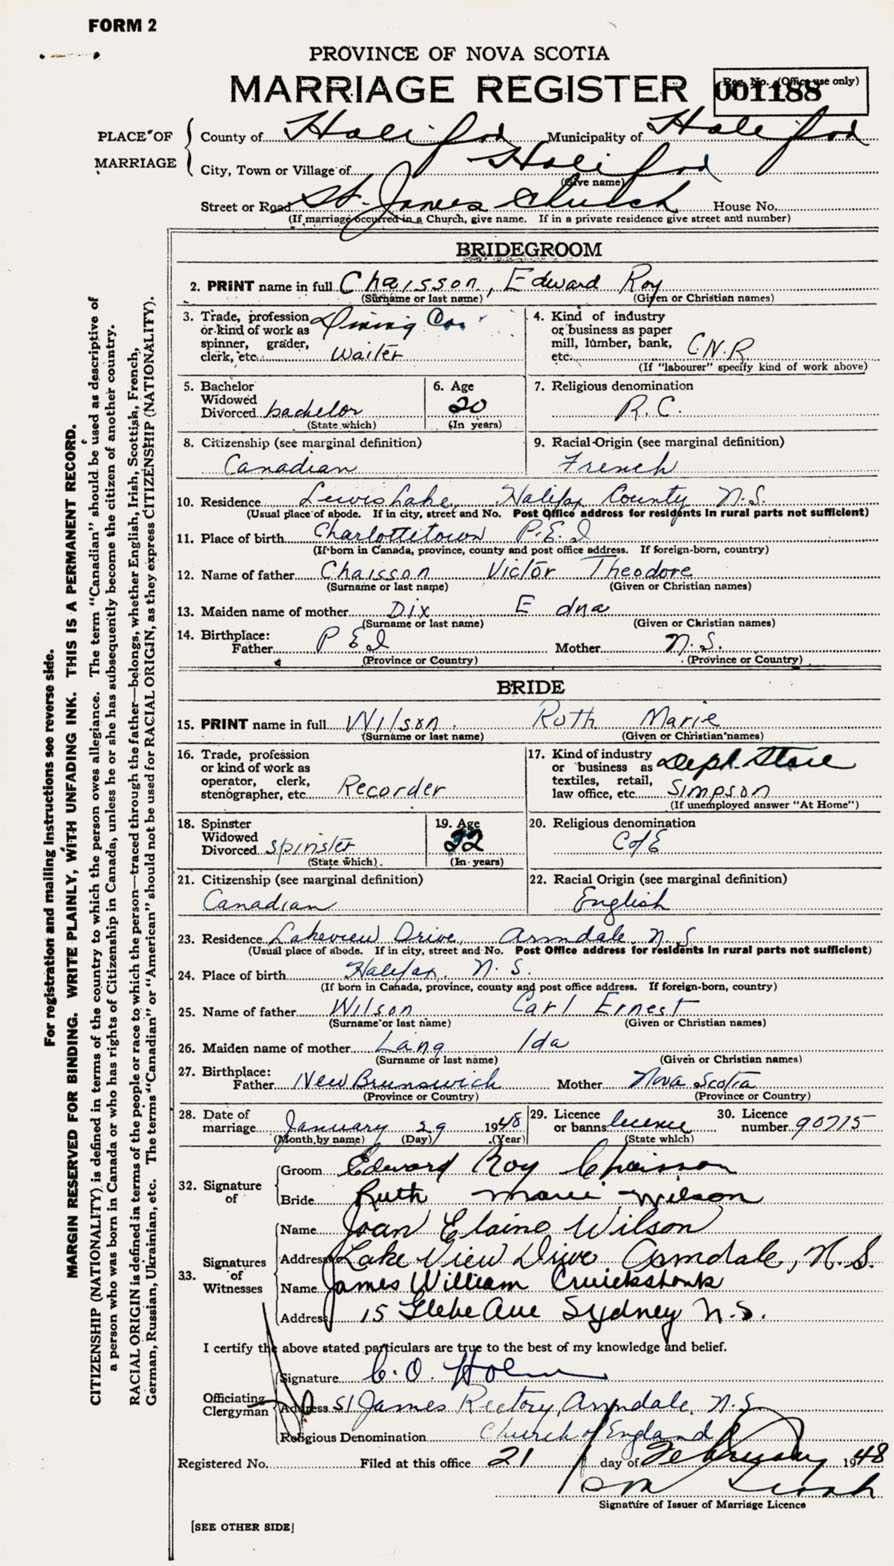 FORM 2
PROVINCE OF NOVA SCOTIA
MARRIAGE REGISTER
Reg. No. (Office use only)
001188
PLACE OF MARRIAGE
County of Halifax Municipality of Halifax
City, Town or Village of Halifax
(Give name)
Street or Road St. James Church House No.
(If marriage occurred in a Church, give name. If in a private residence give street and number)
BRIDEGROOM
2. PRINT name in full Chaisson, Edward Roy
(Surname or last name) (Given or Christian names)
3. Trade, profession or kind of work as spinner, grader, clerk, etc. Dining Car Waiter
4. Kind of industry or business as paper mill, lumber, bank, etc. C.N.R
(If "labourer" specify kind of work above)
5. Bachelor Widowed Divorced bachelor
(State which)
6. Age 20
(In years)
7. Religious denomination R.C.
8. Citizenship (see marginal definition) Canadian
9. Racial Origin (see marginal definition) French
10. Residence Lewis Lake, Halifax County N.S.
(Usual place of abode. If in city, street and No. Post Office address for residents in rural parts not sufficient)
11. Place of birth Charlottetown P.E.I
(If born in Canada, province, county and post office address. If foreign-born, country)
12. Name of father Chaisson Victor Theodore
(Surname or last name) (Given or Christian names)
13. Maiden name of mother Dix Edna
(Surname or last name) (Given or Christian names)
14. Birthplace: Father P E I Mother N.S.
(Province or Country) (Province or Country)
BRIDE
15. PRINT name in full Wilson Ruth Marie
(Surname or last name) (Given or Christian names)
16. Trade, profession or kind of work as operator, clerk, stenographer, etc. Recorder
17. Kind of industry or business as textiles, retail, law office, etc. Dept. Store Simpson
(If unemployed answer "At Home")
18. Spinster Widowed Divorced spinster
(State which)
19. Age 22
(In years)
20. Religious denomination C of E
21. Citizenship (see marginal definition) Canadian
22. Racial Origin (see marginal definition) English
23. Residence Lakeview Drive, Armdale, N.S.
(Usual place of abode. If in city, street and No. Post Office address for residents in rural parts not sufficient)
24. Place of birth Halifax, N.S.
(If born in Canada, province, county and post office address. If foreign-born, country)
25. Name of father Wilson Carl Ernest
(Surname or last name) (Given or Christian names)
26. Maiden name of mother Lang Ida
(Surname or last name) (Given or Christian names)
27. Birthplace: Father New Brunswick Mother Nova Scotia
(Province or Country) (Province or Country)
28. Date of marriage January 29 1948
(Month by name) (Day) (Year)
29. Licence or banns licence
(State which)
30. Licence number 90715
32. Signature of
Groom Edward Roy Chaisson
Bride Ruth Marie Wilson
33. Signatures of Witnesses
Name Joan Elaine Wilson
Address Lake View Drive Armdale, N.S.
Name James William Cruickshank
Address 15 Glebe Ave Sydney N.S.
I certify the above stated particulars are true to the best of my knowledge and belief.
Officiating Clergyman
Signature C.O.
Address St James Rectory, Armdale, N.S.
Religious Denomination Church of England
Registered No. Filed at this office 21 day of February 1948
Signature of Issuer of Marriage Licence
[SEE OTHER SIDE]
For registration and mailing instructions see reverse side.
MARGIN RESERVED FOR BINDING. WRITE PLAINLY, WITH UNFADING INK. THIS IS A PERMANENT RECORD.
CITIZENSHIP (NATIONALITY) is defined in terms of the country to which the person owes allegiance. The term "Canadian" should be used as descriptive of
a person who was born in Canada or who has rights of Citizenship in Canada, unless he or she has subsequently become the citizen of another country.
RACIAL ORIGIN is defined in terms of the people or race to which the person—traced through the father—belongs, whether English, Irish, Scottish, French,
German, Russian, Ukrainian, etc. The terms "Canadian" or "American" should not be used for RACIAL ORIGIN, as they express CITIZENSHIP (NATIONALITY).